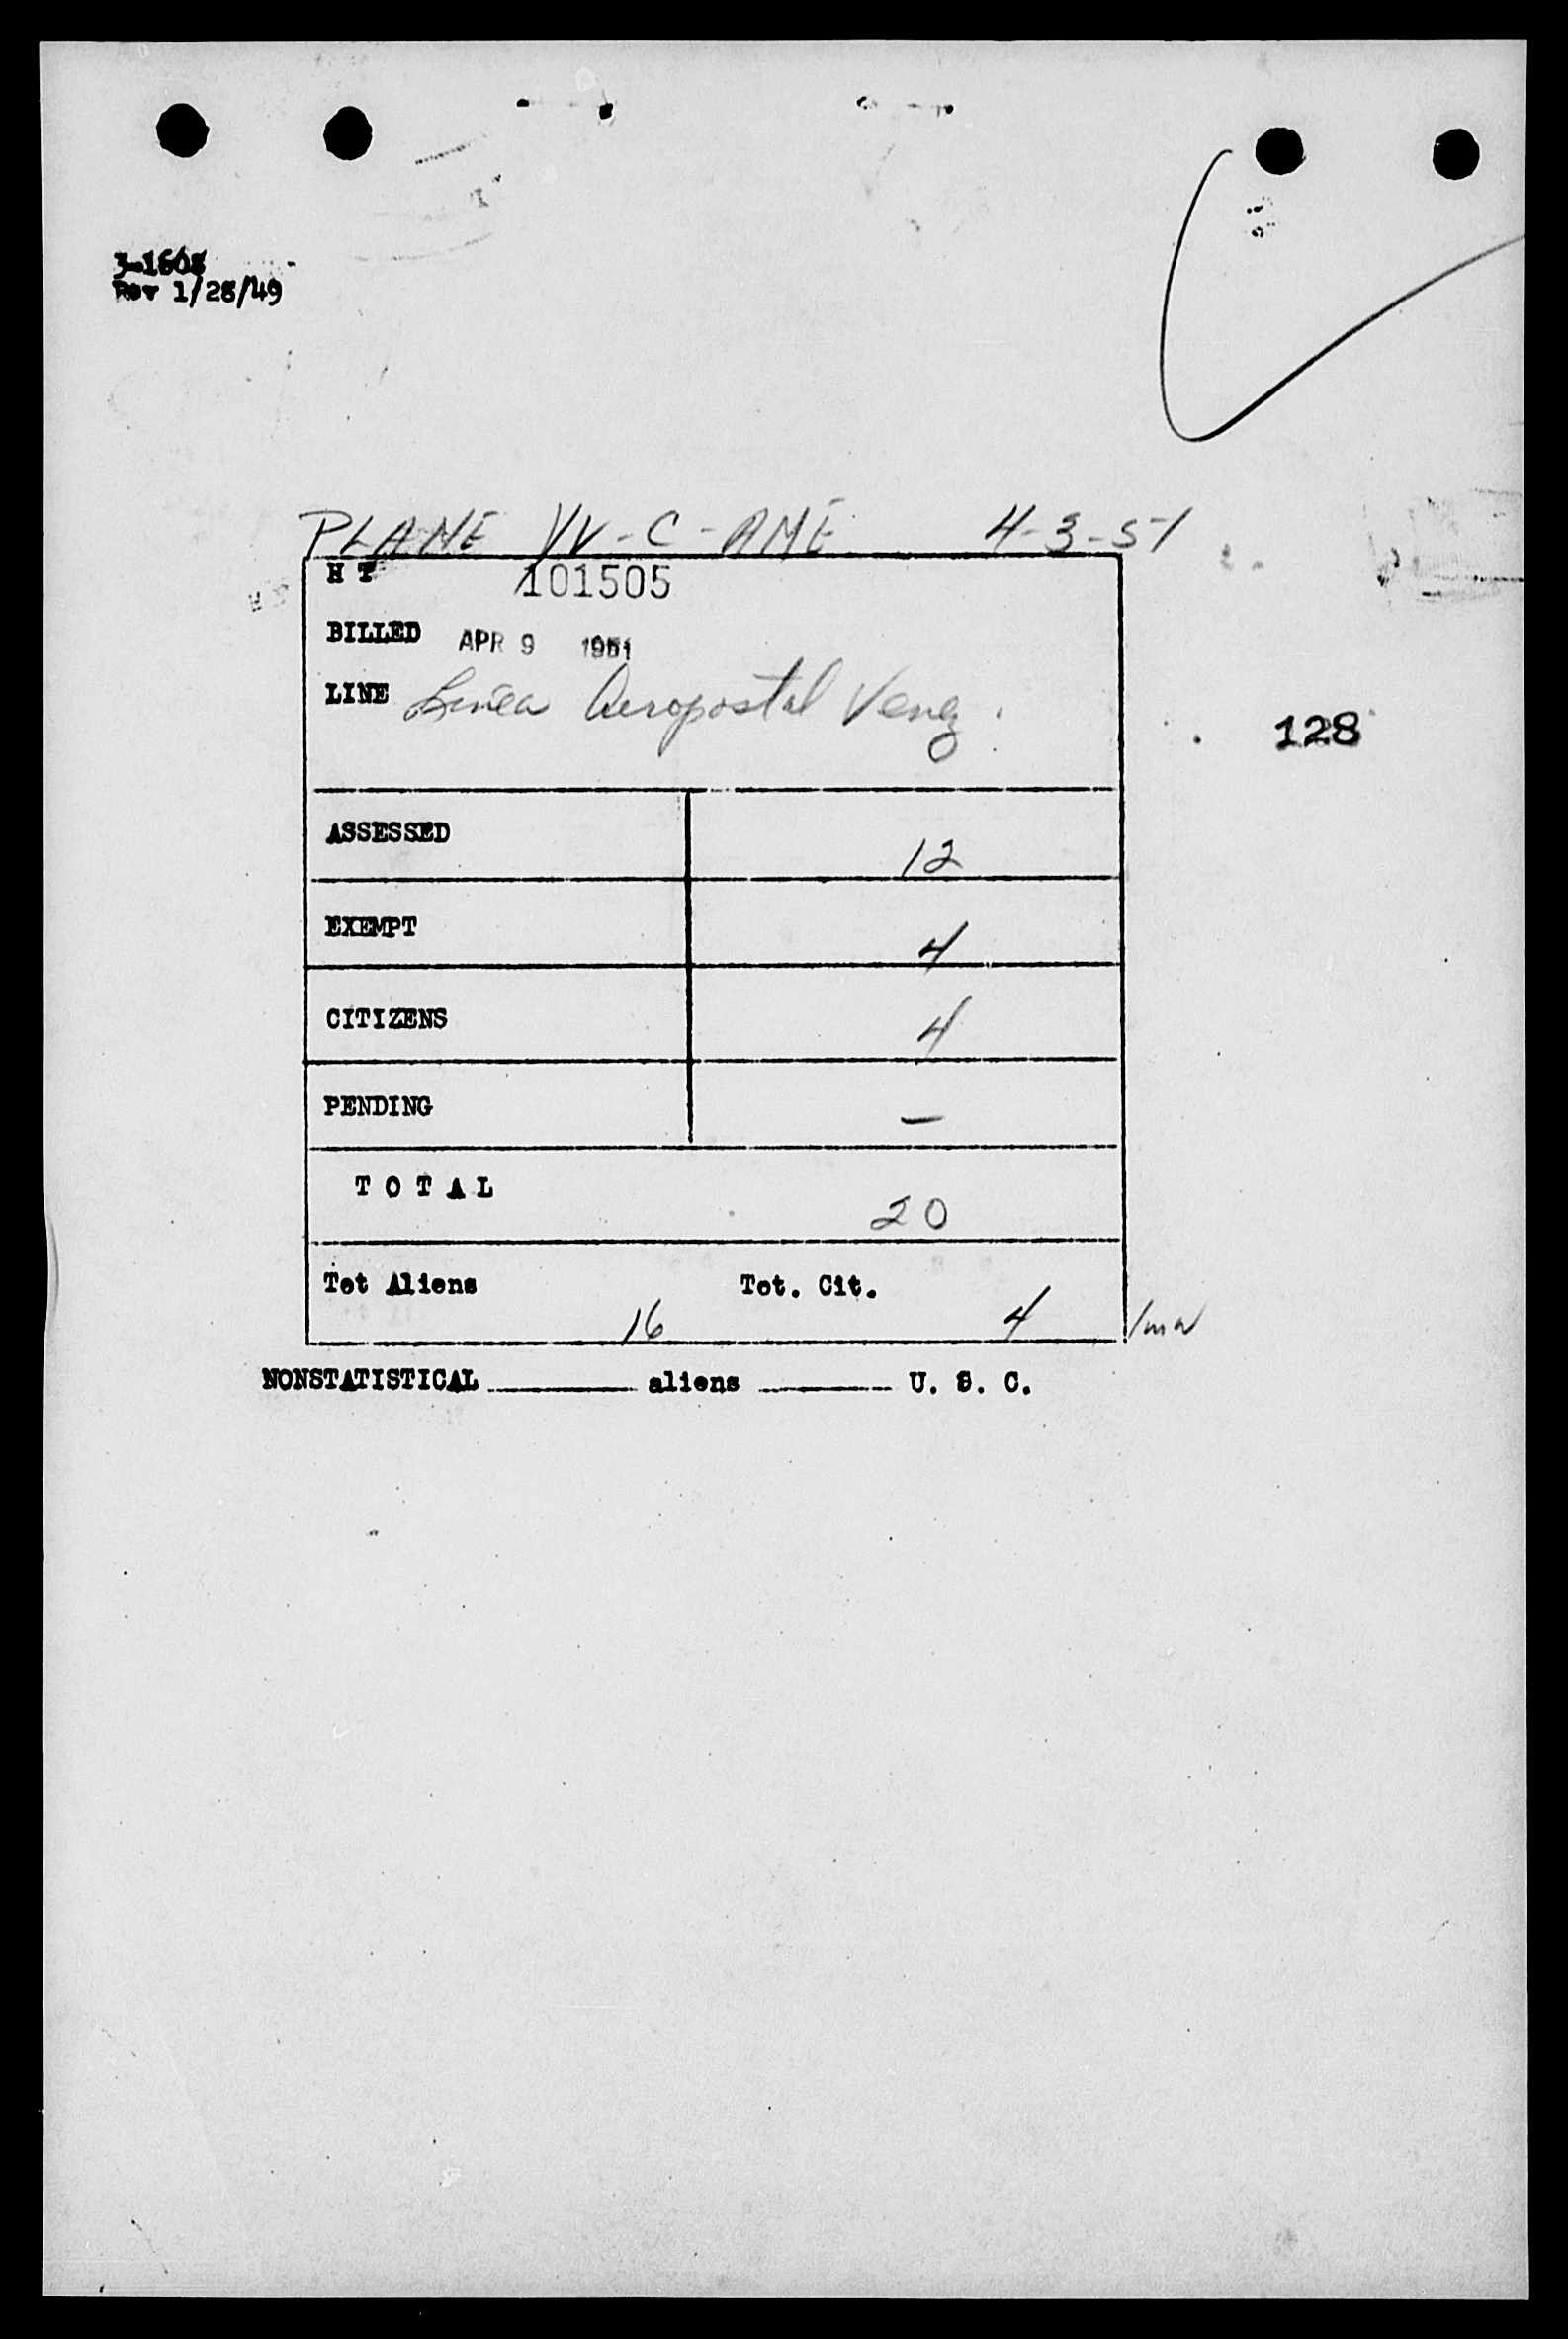 3-1608
Rev 1/28/49
PLANE YV-C-AME 4-3-51
H T 101505
BILLED APR 9 1951
LINE Linea Aeropostal Venez.
128
ASSESSED 12
EXEMPT 4
CITIZENS 4
PENDING —
T O T A L 20
Tot Aliens 16 Tot. Cit. 4
NONSTATISTICAL ______ aliens ______ U. S. C.